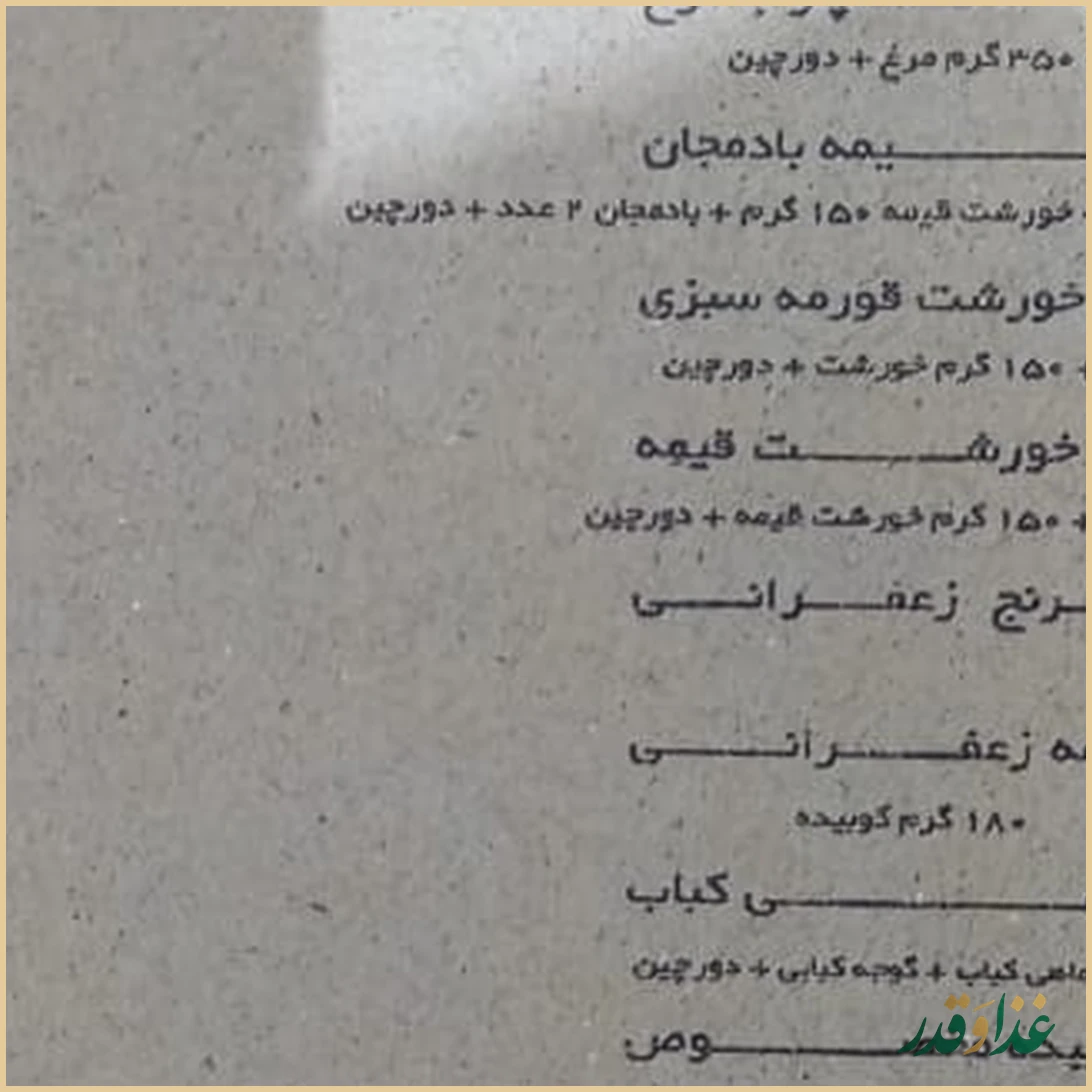 ۳۵۰ گرم مرغ + دورچین
یمه بادمجان
خورشت قیمه ۱۵۰ گرم + بادمجان ۲ عدد + دورچین
خورشت قورمه سبزی
+ ۱۵۰ گرم خورشت + دورچین
خورشت قیمه
+ ۱۵۰ گرم خورشت قیمه + دورچین
برنج زعفرانی
ه زعفرانی
۱۸۰ گرم کوبیده
ی کباب
ماهی کباب + گوجه کبابی + دورچین
غذا و قدر